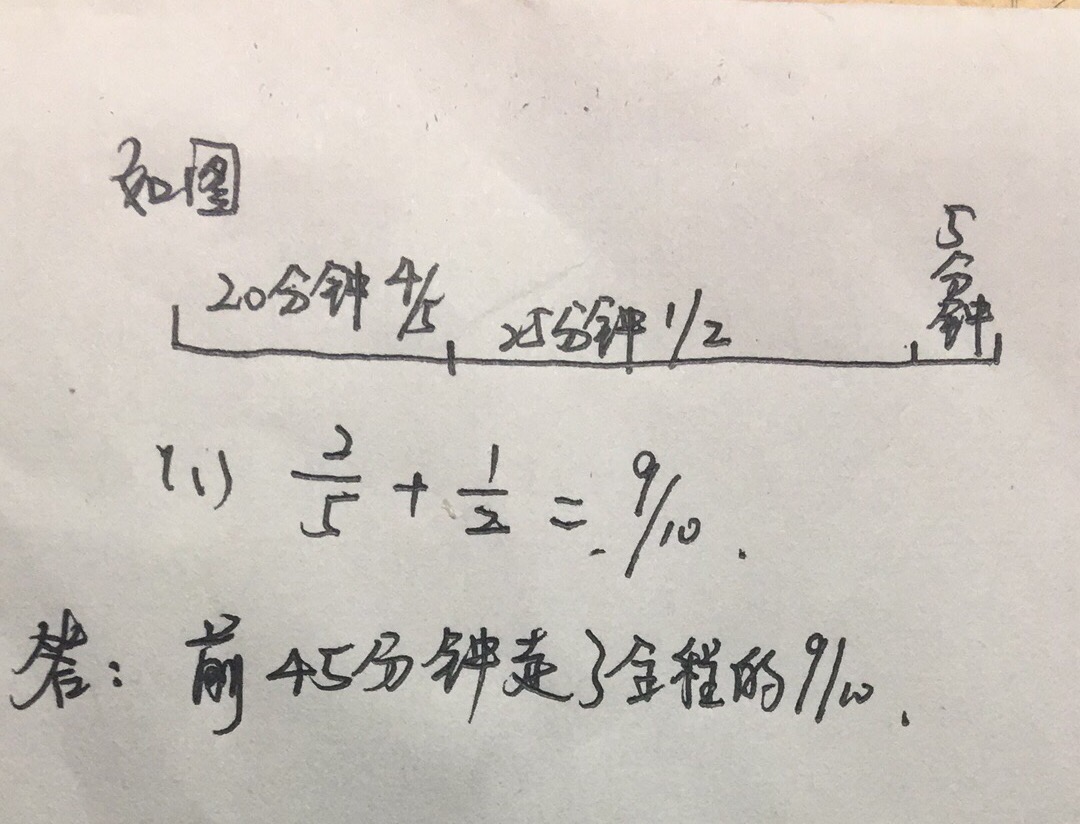 如图
20分钟 4/5 25分钟 1/2 5分钟
(1) 2/5 + 1/2 = 9/10.
答：前45分钟走了全程的9/10.